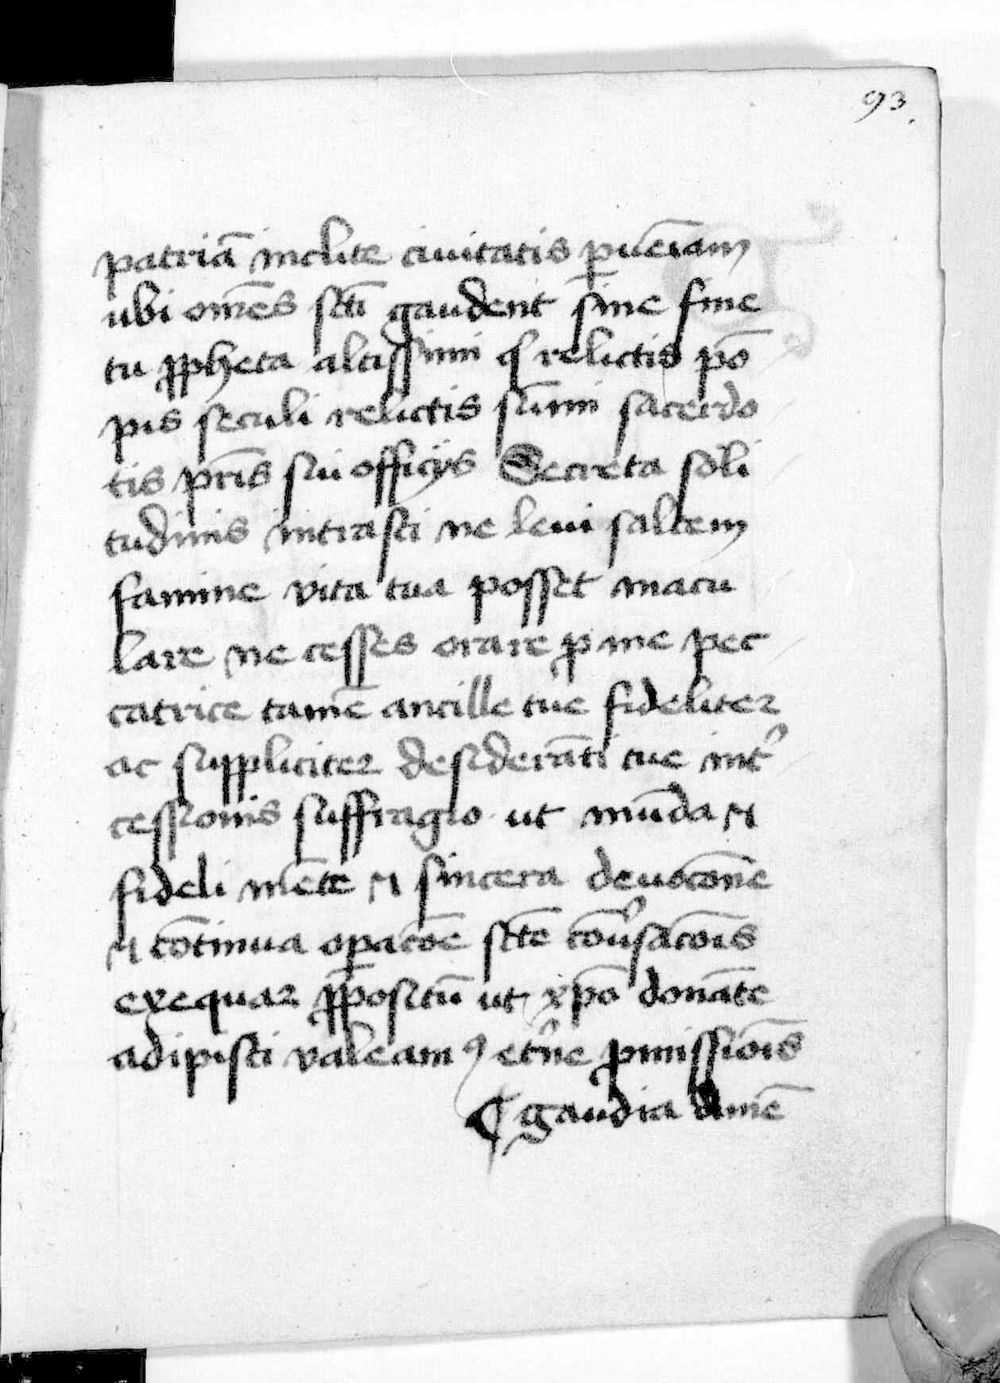 93.
patriā inclite ciuitatis ꝑueīam
ubi om̄es sc̄ti gaudent sine fine
tu ꝓpheta altissimi q relictis pō
pis seculi relictis sūmi sacerdo
tis pr̄is sui officijs Secreta soli
tudinis intrasti ne leui saltem
famine vita tua posset macu
lare ne cesses orare ꝓ me pec
catrice tamē ancille tue fideliter
ac suppliciter desiderāti tue int᷑
cessionis suffragio ut mūda ⁊
fideli mēte ⁊ sincera deuocōne
⁊ cōtinua oꝑacōe sc̄te cōu᷑sacōis
exequar ꝓpositū ut xp̄o donāte
adipisci valeam et᷑ne ꝓmissiōis
¶ gaudia amē